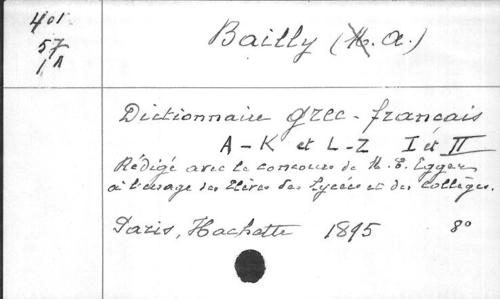 401
57
1 A
Bailly (M. A.)
Dictionnaire grec-français
A-K et L-Z I et II
Rédigé avec le concours de M. E. Egger
à l'usage des Élèves des Lycées et des Collèges.
Paris, Hachette 1895 8°